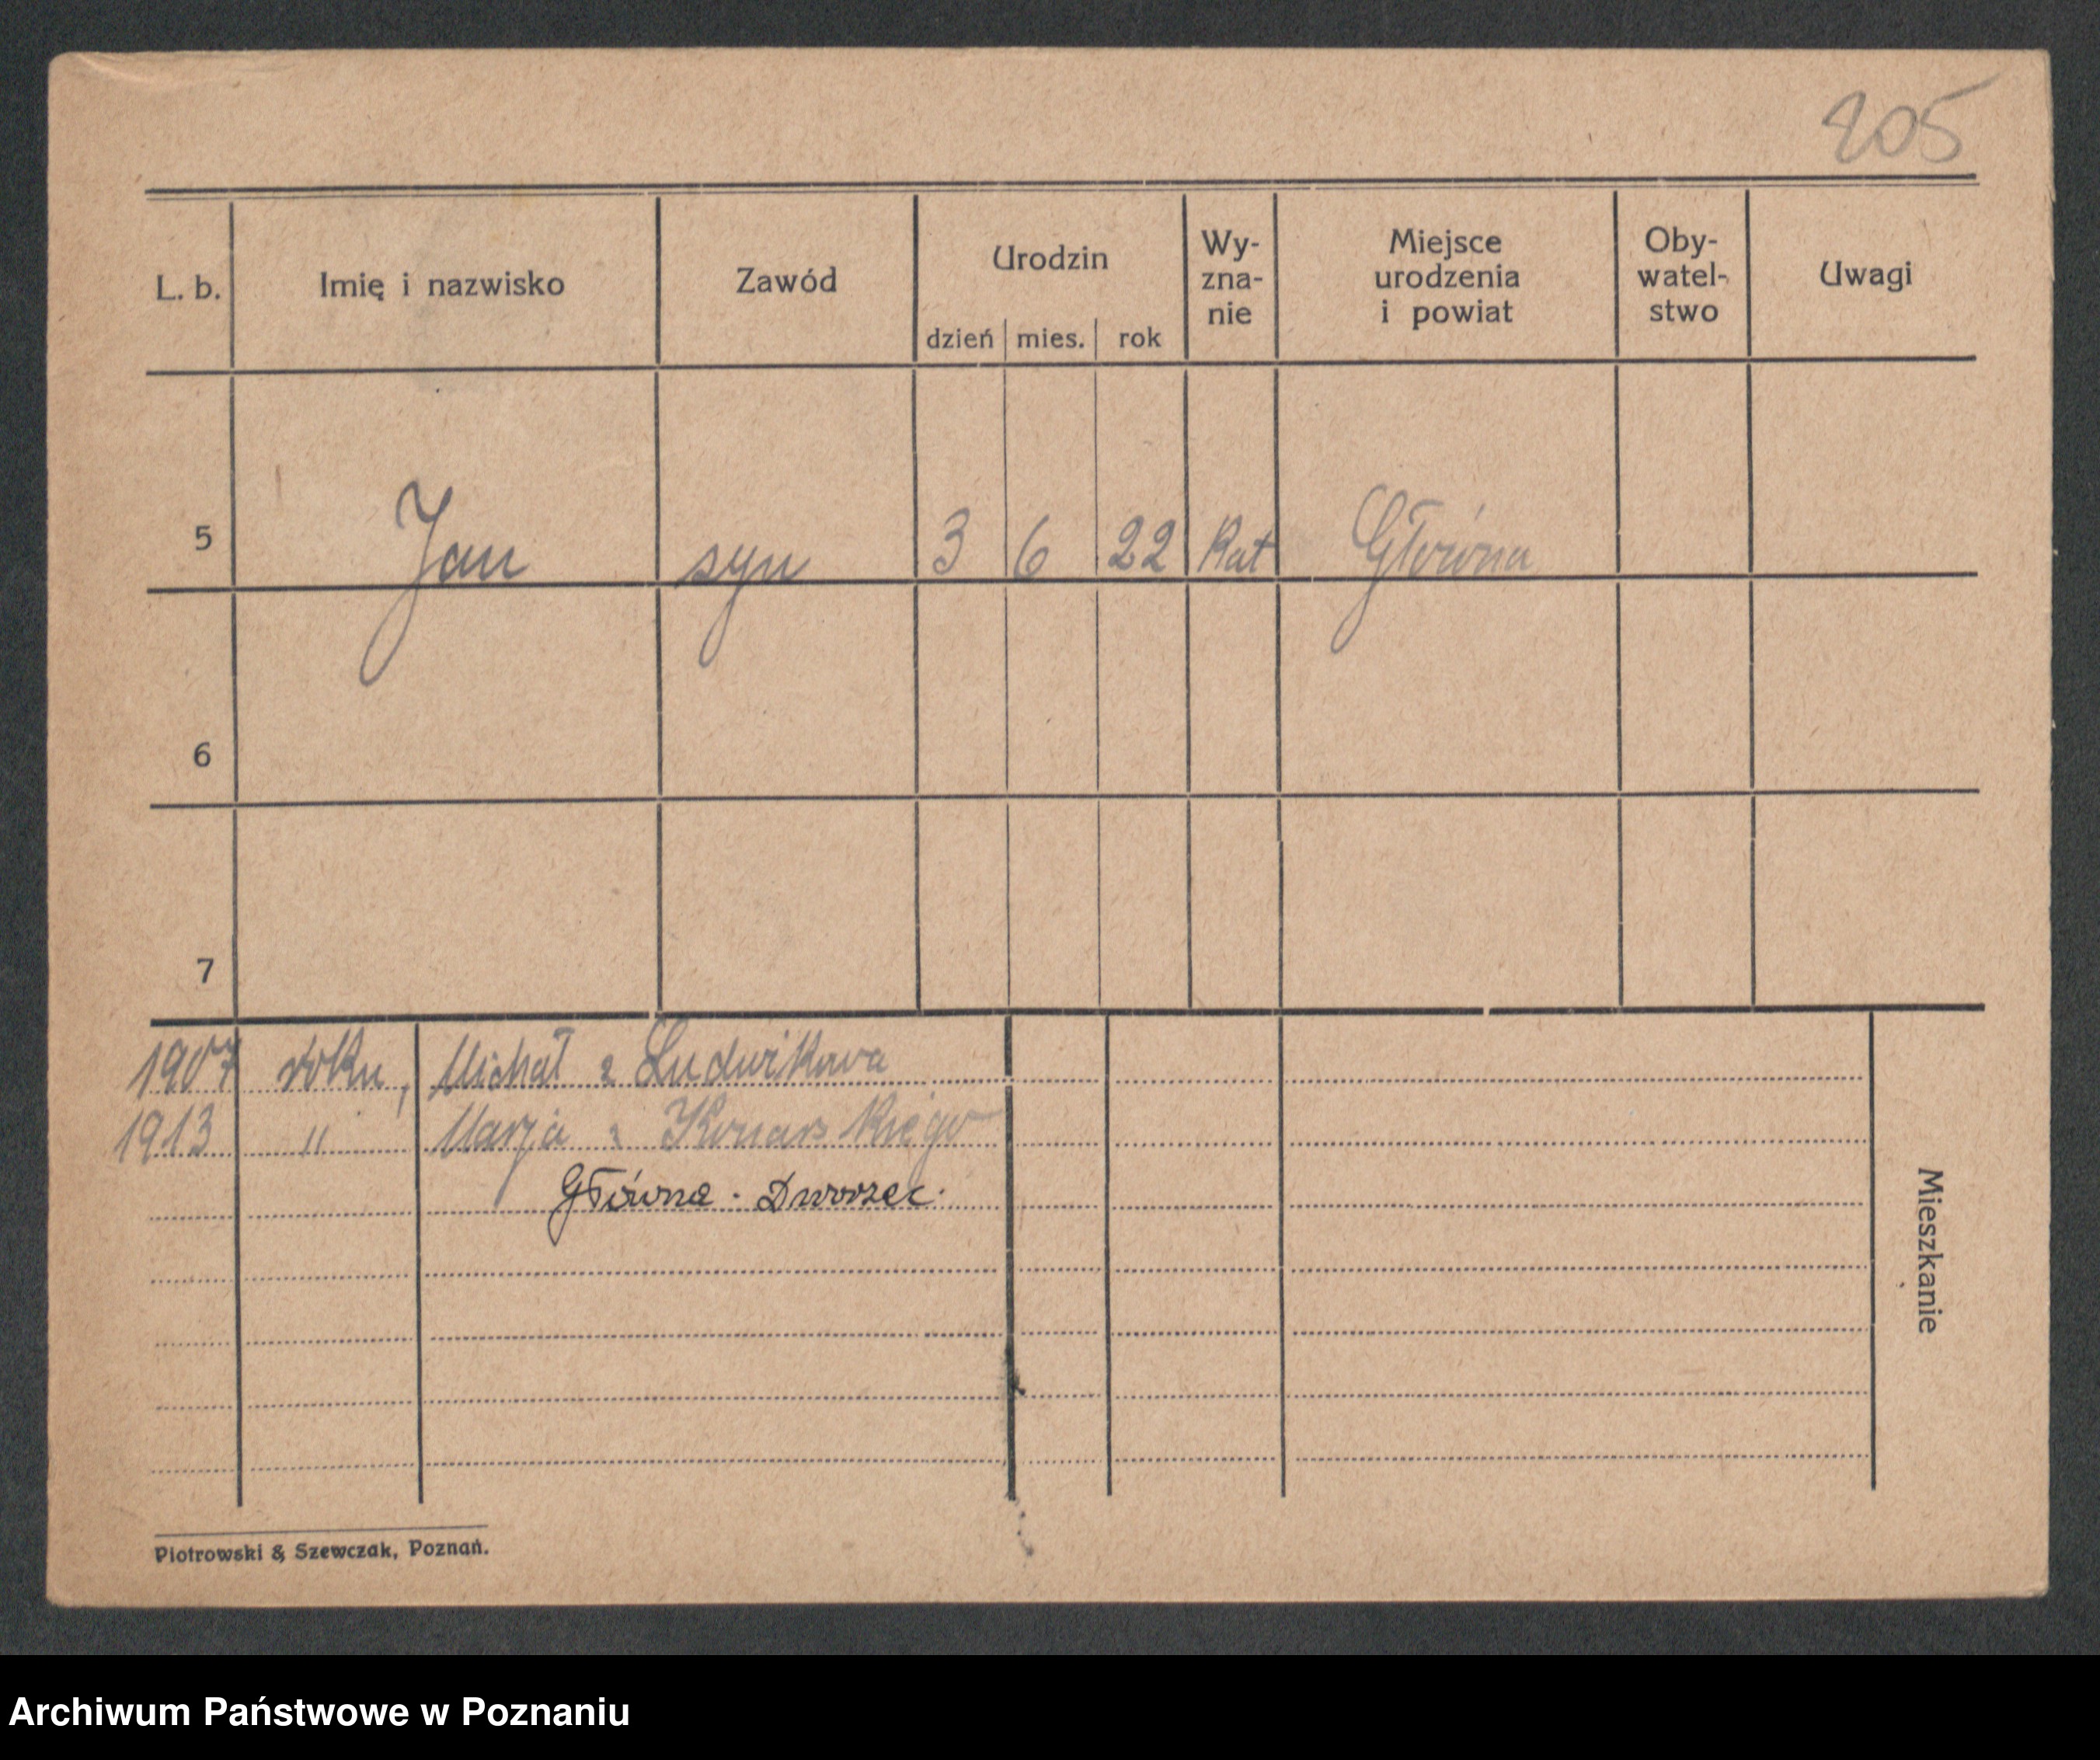 205
L. b. Imię i nazwisko Zawód Urodzin dzień mies. rok Wy- zna- nie Miejsce urodzenia i powiat Oby- watel- stwo Uwagi
5 Jan syn 3 6 22 Kat Główna
6
7
1907 roku, Michał z Ludwikowa
1913 " Marja z Konarskiego
Główna - Dworzec.
Mieszkanie
Piotrowski & Szewczak, Poznań.
Archiwum Państwowe w Poznaniu